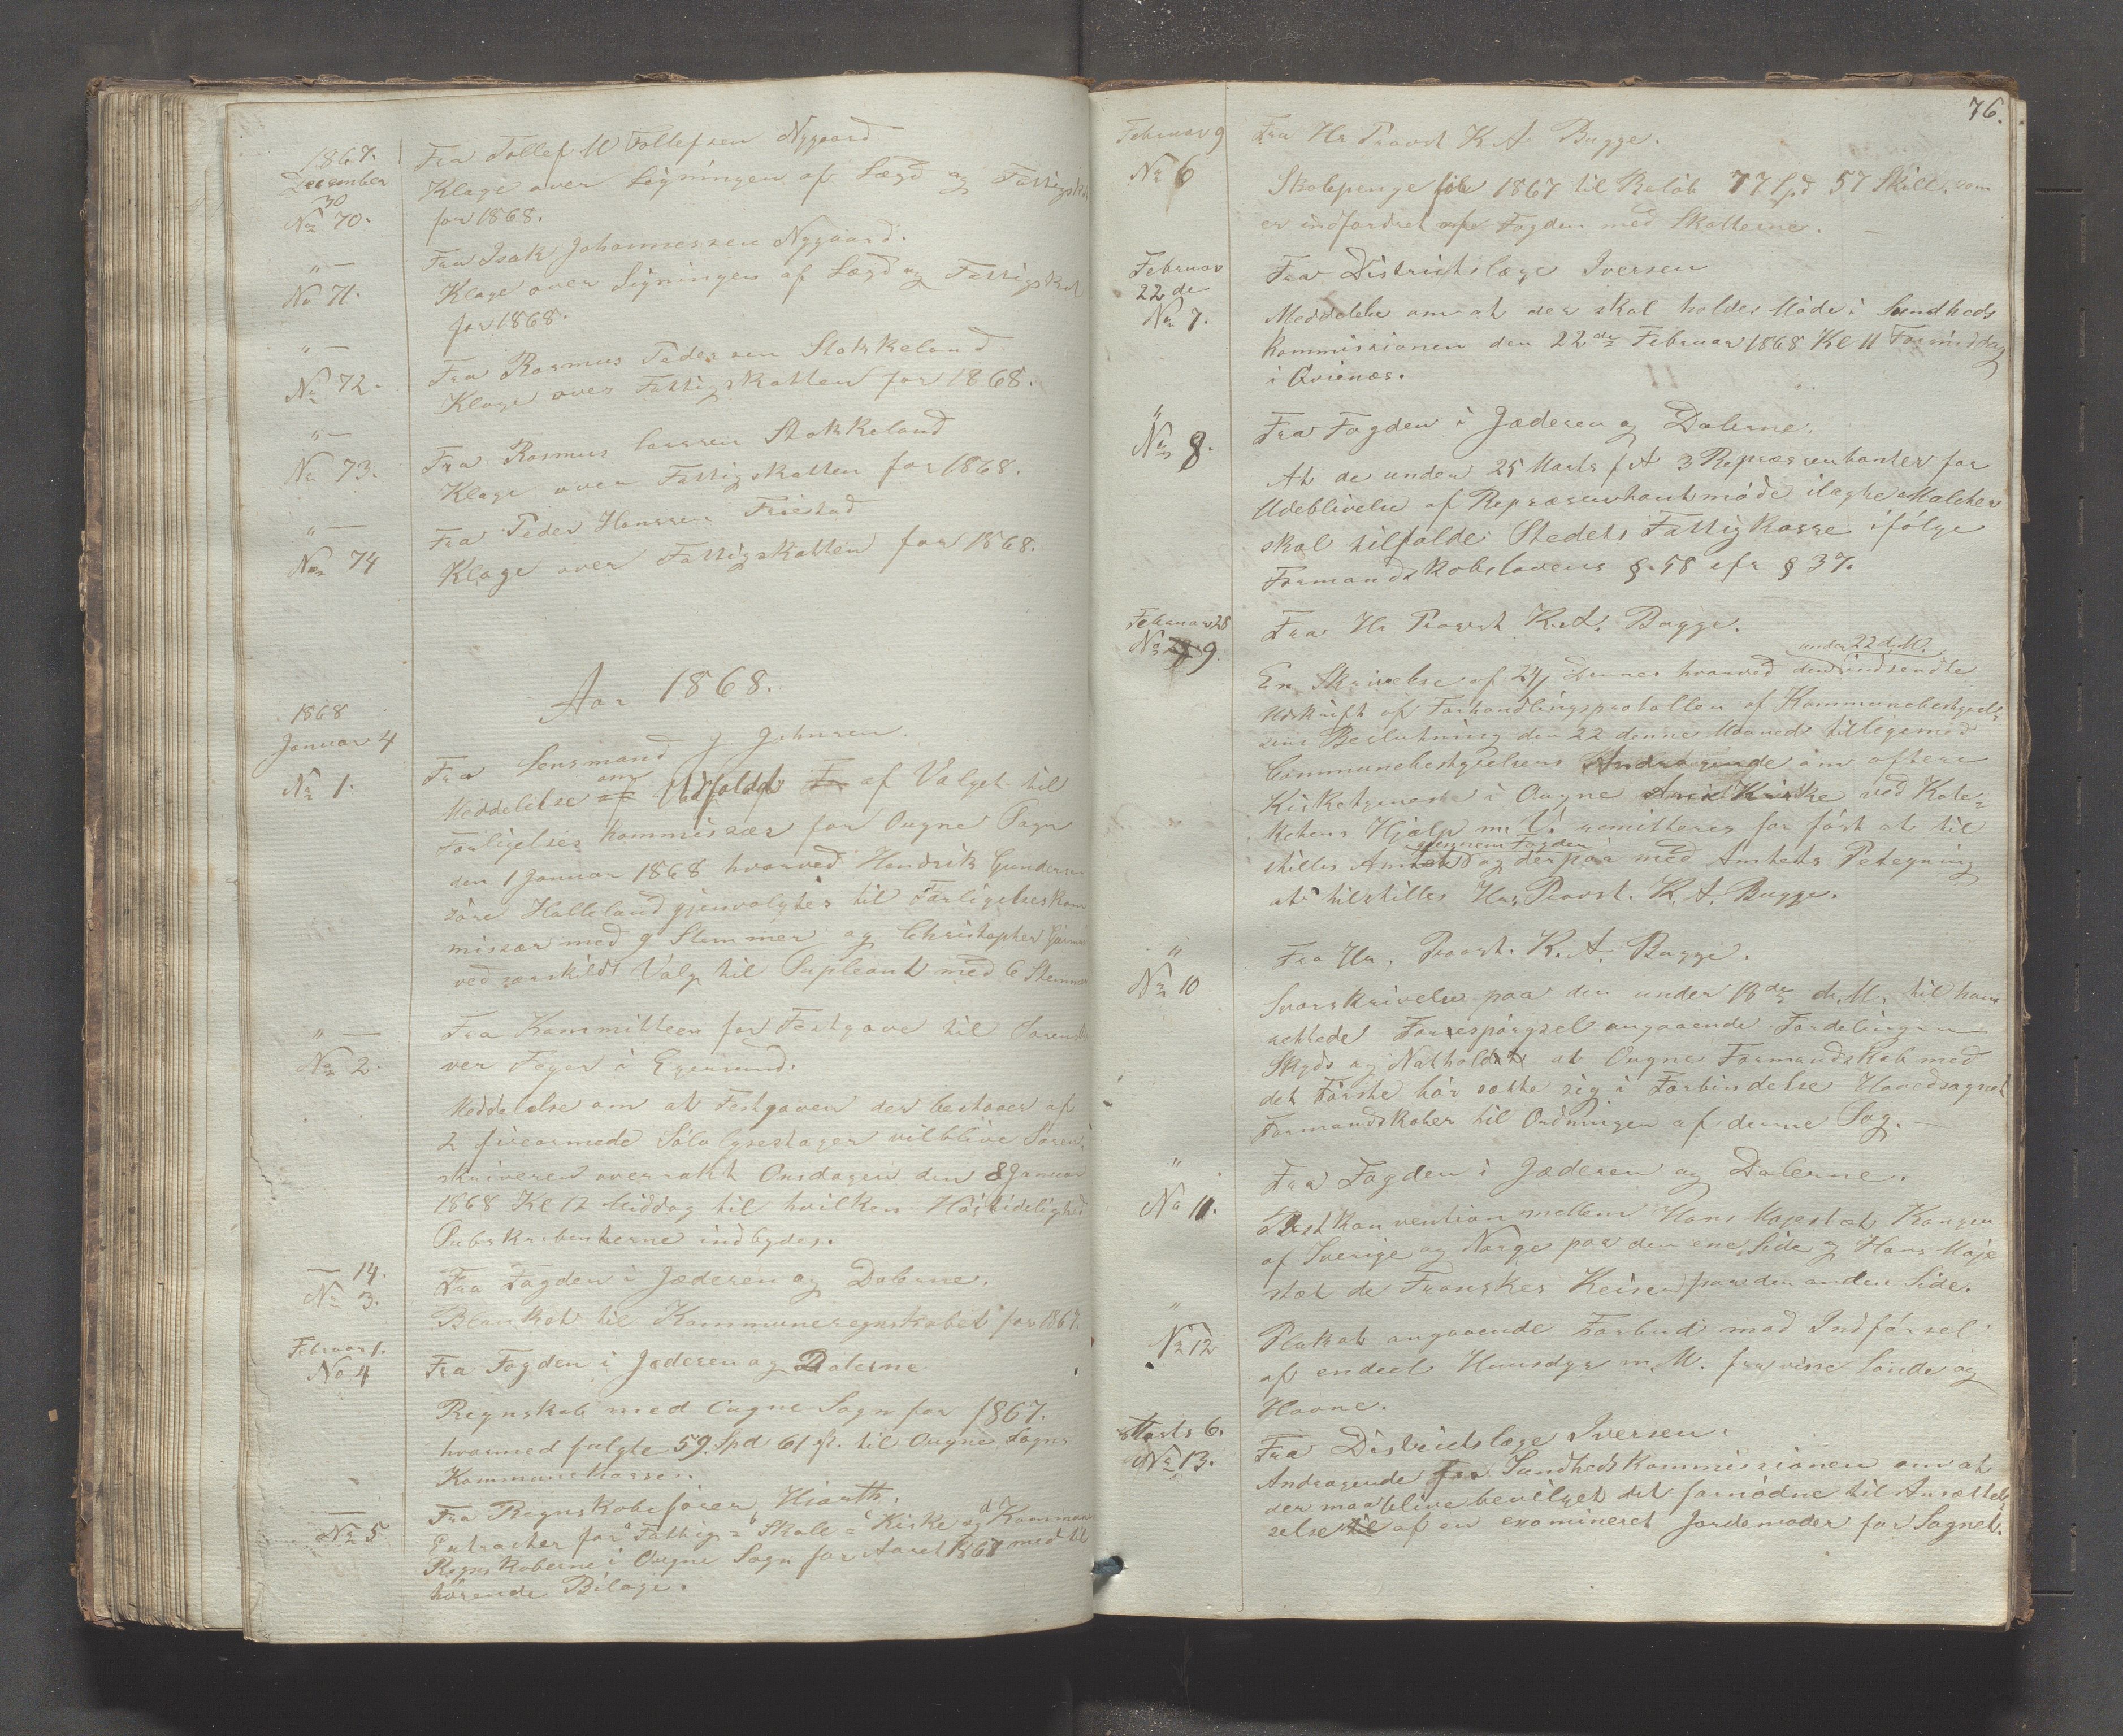 1867.
December
30
No 70.
Fra Tollef M Tollefsen Nygaard
Klage over Ligningen af Lægd og Fattigskat
for 1868.
" —
No 71.
Fra Isak Johannessen Nygaard.
Klage over Ligningen af Lægd og Fattigskat
for 1868.
" —
No 72.
Fra Rasmus Pedersen Stokkeland
Klage over Fattigskatten for 1868.
" —
No 73.
Fra Rasmus Larssen Stokkeland
Klage over Fattigskatten for 1868.
" —
No 74
Fra Peder Hanssen Friestad
Klage over Fattigskatten for 1868.
Aar 1868.
1868
Januar 4
No 1.
Fra Lensmand J Johnsen.
Meddelelse af om Udfaldet Fr af Valget til
Forligelses Kommissær for Ougne Sogn
den 1 Januar 1868 hvorved Hendrik Gunders
søre Halleland gjenvalgtes til Forligelseskom
missær med 9 Stemmer og Christopher
ved særskildt Valg til Supleant med 6 Stemmer
" —
No 2.
Fra Kommitteen for Festgave til Sorenskri
ver Feyer i Egersund.
Meddelelse om at Festgaven der bestaaer af
2 firearmede Sølv lysestager vil blive Soren
skriveren overrakt Onsdagen den 8 Januar
1868 Kl 12 Middag til hvilken Høitidelighed
Subskribenterne indbydes.
— 14.
No 3.
Fra Fogden i Jæderen og Dalerne.
Blanket til Kommuneregnskabet for 1867.
Februar 1.
No 4
Fra Fogden i Jæderen og Dalerne
Regnskab med Ougne Sogn for 1867.
hvormed fulgte 59. Spd 61 s. til Ougne Sogns
Kommunekasse.
—
No 5
Fra Regnskabsfører Hiorth.
Extracter for Fattig= Skole= Kirke og Kommune
Regnskaberne i Ougne Sogn for Aaret 1867 med til
hørende Bilage.
76.
Februar 9
No 6
Fra Hr Provst K A Bugge.
Skolepenge for 1867 til Beløb 77 Spd 57 Skill. som
er indfordret af Fogden med Skatterne. —
Februar
22 de
No 7.
Fra Distriktslæge Iversen
Meddelelse om at der skal holdes Møde i Sundheds
Kommissionen den 22de Februar 1868 Kl 11 Formiddag
i Qvienæs.
"
No 8.
Fra Fogden i Jæderen og Dalerne.
At de under 25 Marts f A 3 Repræsentanter for
Udeblivelse af Repræsentantmøde ilagte Mulcter
skal tilfalde Stedets Fattigkasse ifølge
Formandskabslovens §. 58 cfr § 37.
Februar 28
No 9.
Fra Hr Provst K. A. Bugge.
En Skrivelse af 24 Dennes hvorved den under 22 d. M. indsendte
Udskrift af Forhandlingsprotollen af Kommunebestyrel
sens Beslutning den 22 denne Maaned tilligemed
Communebestyrelsens Andragende om oftere
Kirketjeneste i Ougne Kirke ved Kate=
ketens Hjælp m. V. remitteres for først at til
stilles Amtet igjennem Fogden og derpaa med Amtets Petegning
at tilstilles Hr. Provst. K. A. Bugge.
"
No 10
Fra Hr. Provst. K. A. Bugge.
Svarskrivelse paa den under 18de d. M. til ham
rettede Forrespørgsel angaaende Fordelingen
Skyds og Nathold at Ougne Formandskab med
det Første bør sætte sig i Forbindelse Hovedsognet
Formandskaber til Ordningen af denne Sag. —
"
No 11.
Fra Fogden i Jæderen og Dalerne.
Postkonvention mellem Hans Majestæt Kongen
af Sverige og Norge paa den ene Side og Hans Maje
stæt de Franskes Keiser paa den anden Side.
"
No 12
Plakat angaaende Forbud mod Indførsel
af endeel Huusdyr m. M. fra visse Lande og
Havne.
Marts 6.
No 13.
Fra Distriktslæge Iversen.
Andragende fra Sundhedskommissionen om at
der maa blive bevilget det fornødne til Ansættel
selse til af en examineret Jordemoder for Sognet.